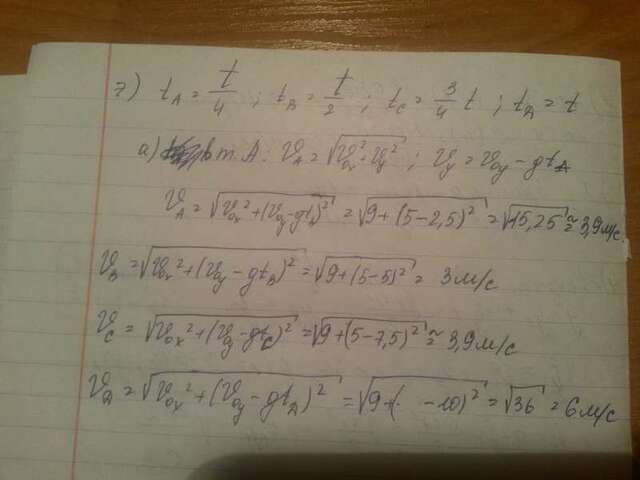 7) t_A = t/4 ; t_B = t/2 ; t_C = 3/4 t ; t_D = t
а) в т. А: V_A = √(V_ox² + V_y²) ; V_y = V_oy - gt_A
V_A = √(V_ox² + (V_oy - gt_A)²) = √(9 + (5 - 2,5)²) = √(15,25) ≈ 3,9 м/с.
V_B = √(V_ox² + (V_oy - gt_B)²) = √(9 + (5 - 5)²) = 3 м/с
V_C = √(V_ox² + (V_oy - gt_C)²) = √(9 + (5 - 7,5)²) ≈ 3,9 м/с
V_D = √(V_ox² + (V_oy - gt_D)²) = √(9 + ( - 10)²) = √36 = 6 м/с